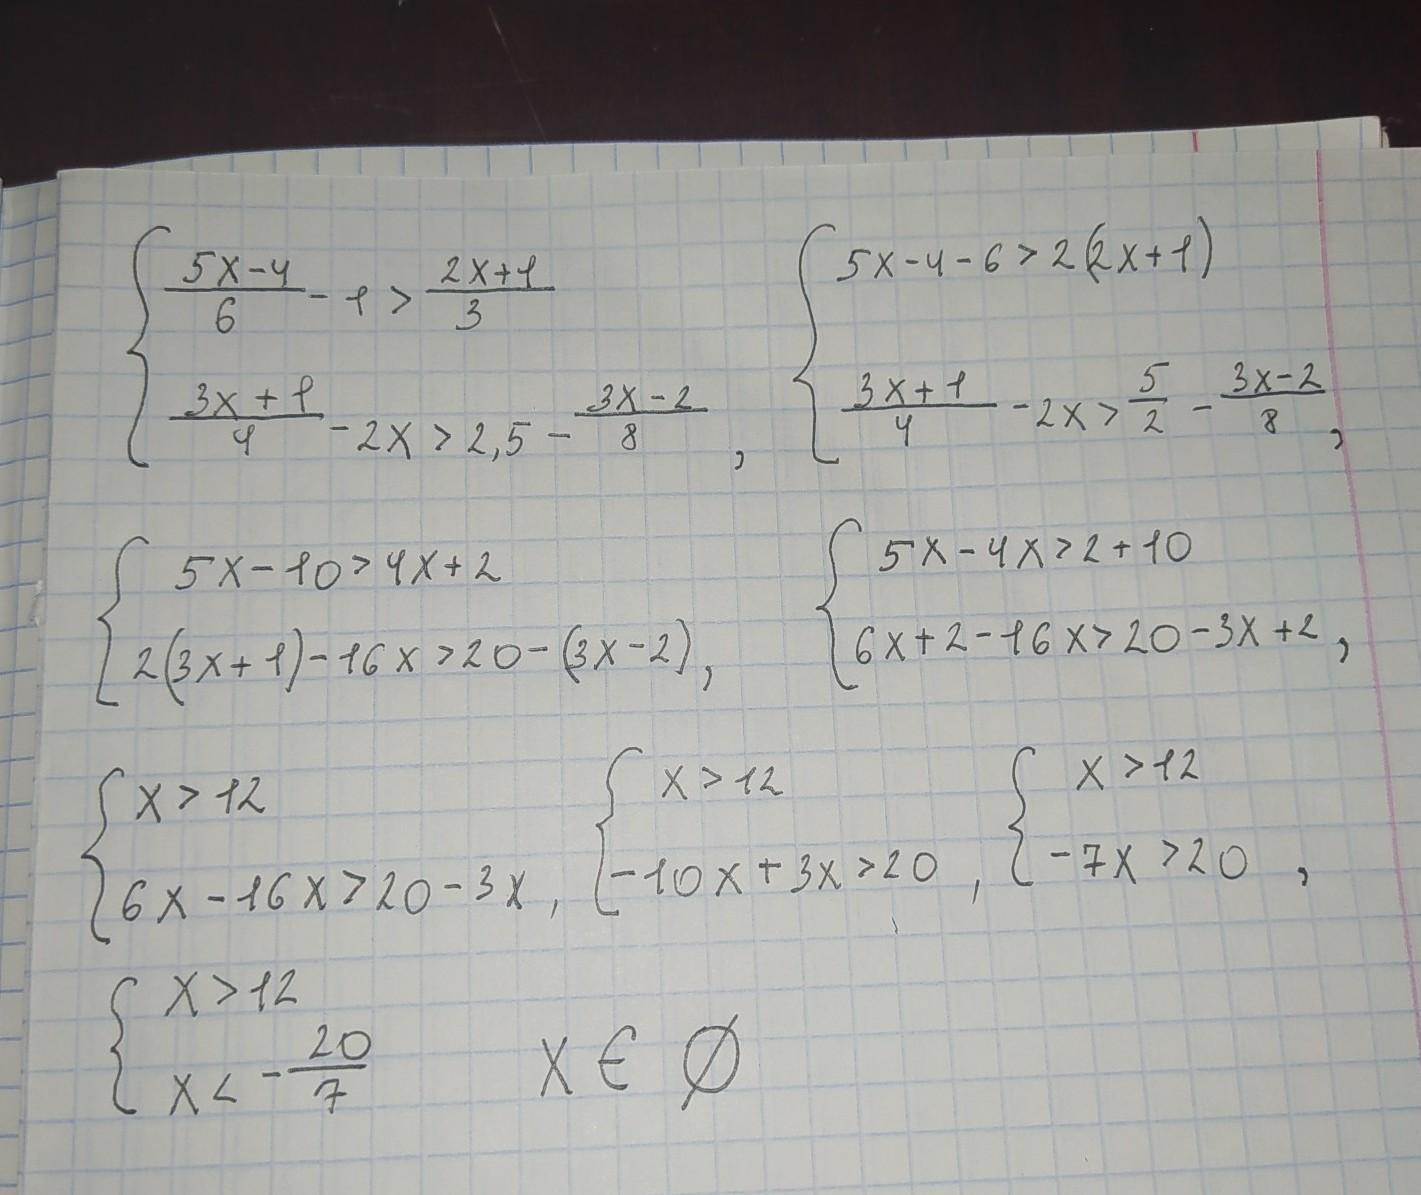 { (5x-4)/6 - 1 > (2x+1)/3
(3x+1)/4 - 2x > 2,5 - (3x-2)/8 ,
{ 5x-4-6 > 2(2x+1)
(3x+1)/4 - 2x > 5/2 - (3x-2)/8 ,
{ 5x-10 > 4x+2
2(3x+1)-16x > 20-(3x-2),
{ 5x-4x > 2+10
6x+2-16x > 20-3x+2,
{ x > 12
6x-16x > 20-3x,
{ x > 12
-10x+3x > 20,
{ x > 12
-7x > 20,
{ x > 12
x < -20/7
x ∈ ∅